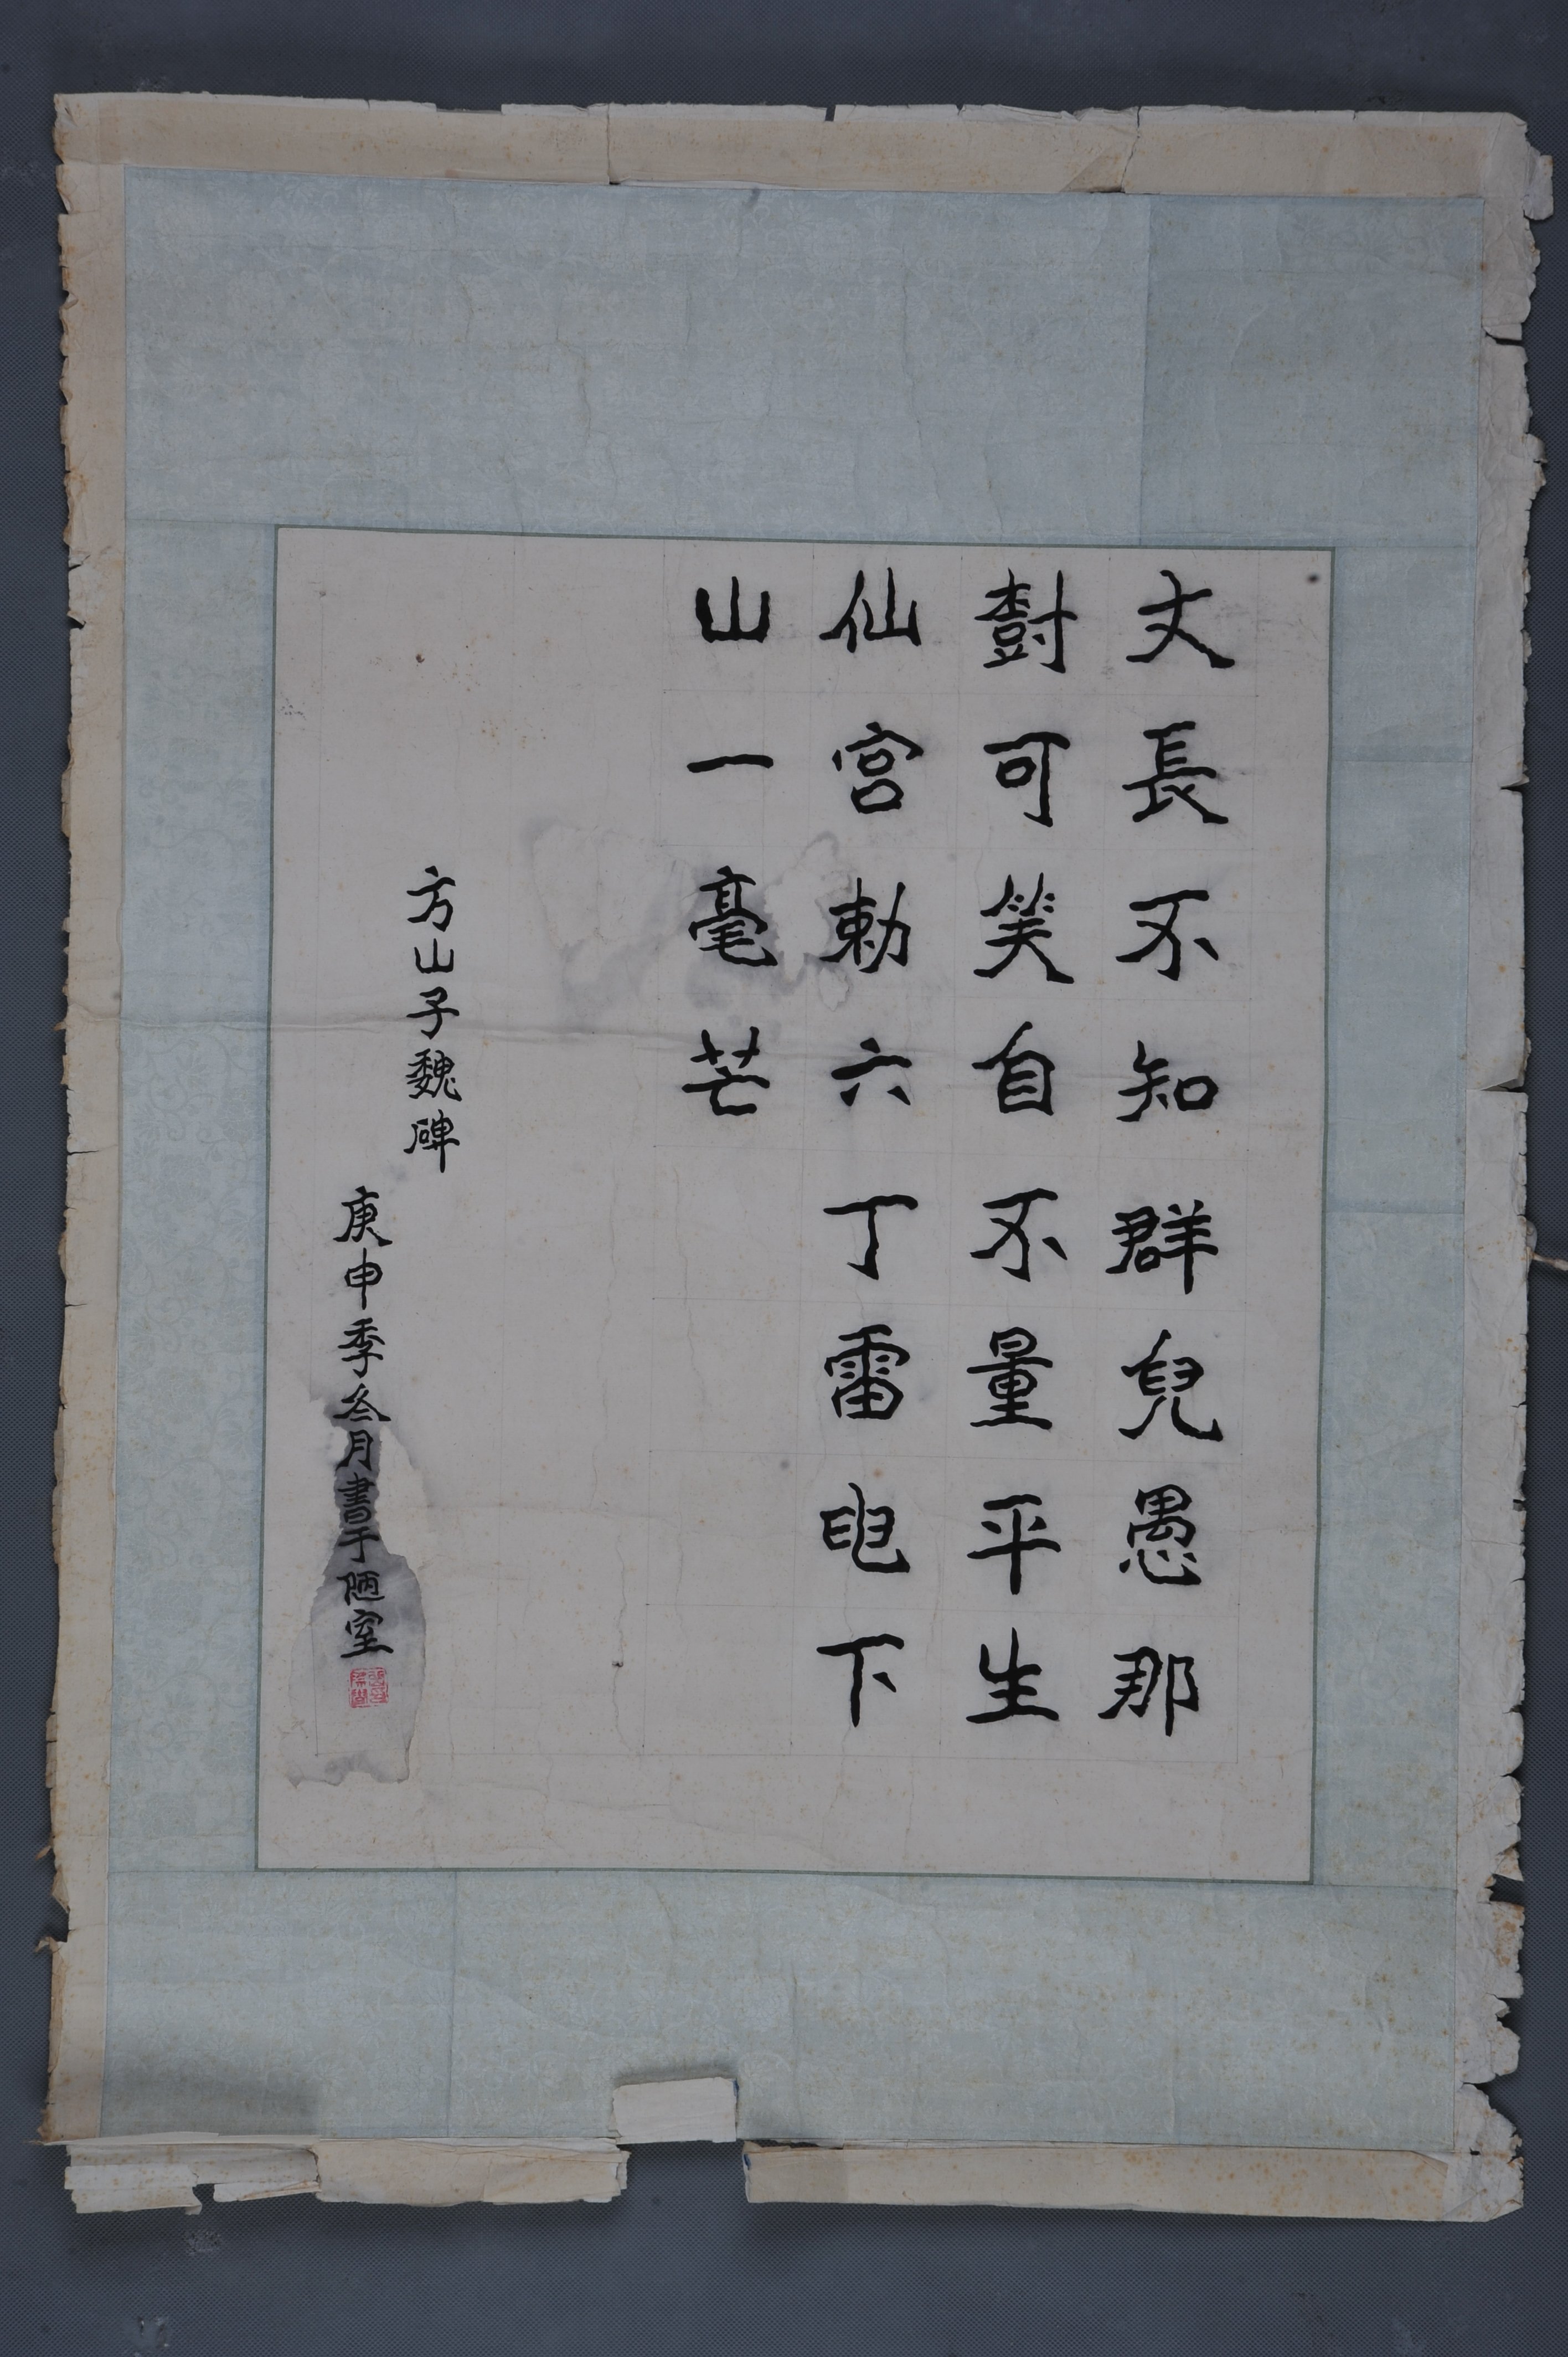 丈長不知群兒愚那
樹可笑自不量平生
仙宮勅六丁雷電下
山一毫芒
方山子魏碑
庚申季冬月書于陋室